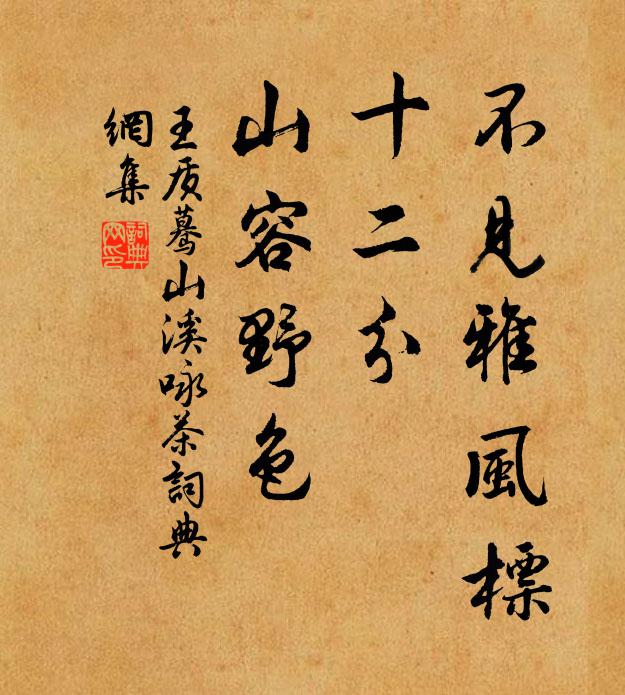 不見雅風標
十二分
山容野色
王质蓦山溪咏茶詞典
網集
詞典網印